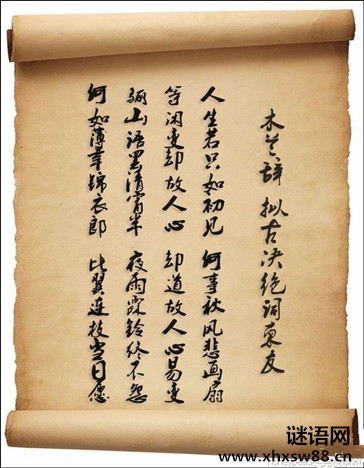 木兰辞 拟古决绝词柬友
人生若只如初见 何事秋风悲画扇
等闲变却故人心 却道故人心易变
骊山语罢清宵半 夜雨霖铃终不怨
何如薄幸锦衣郎 比翼连枝当日愿
谜语网
www.xhxsw88.cn